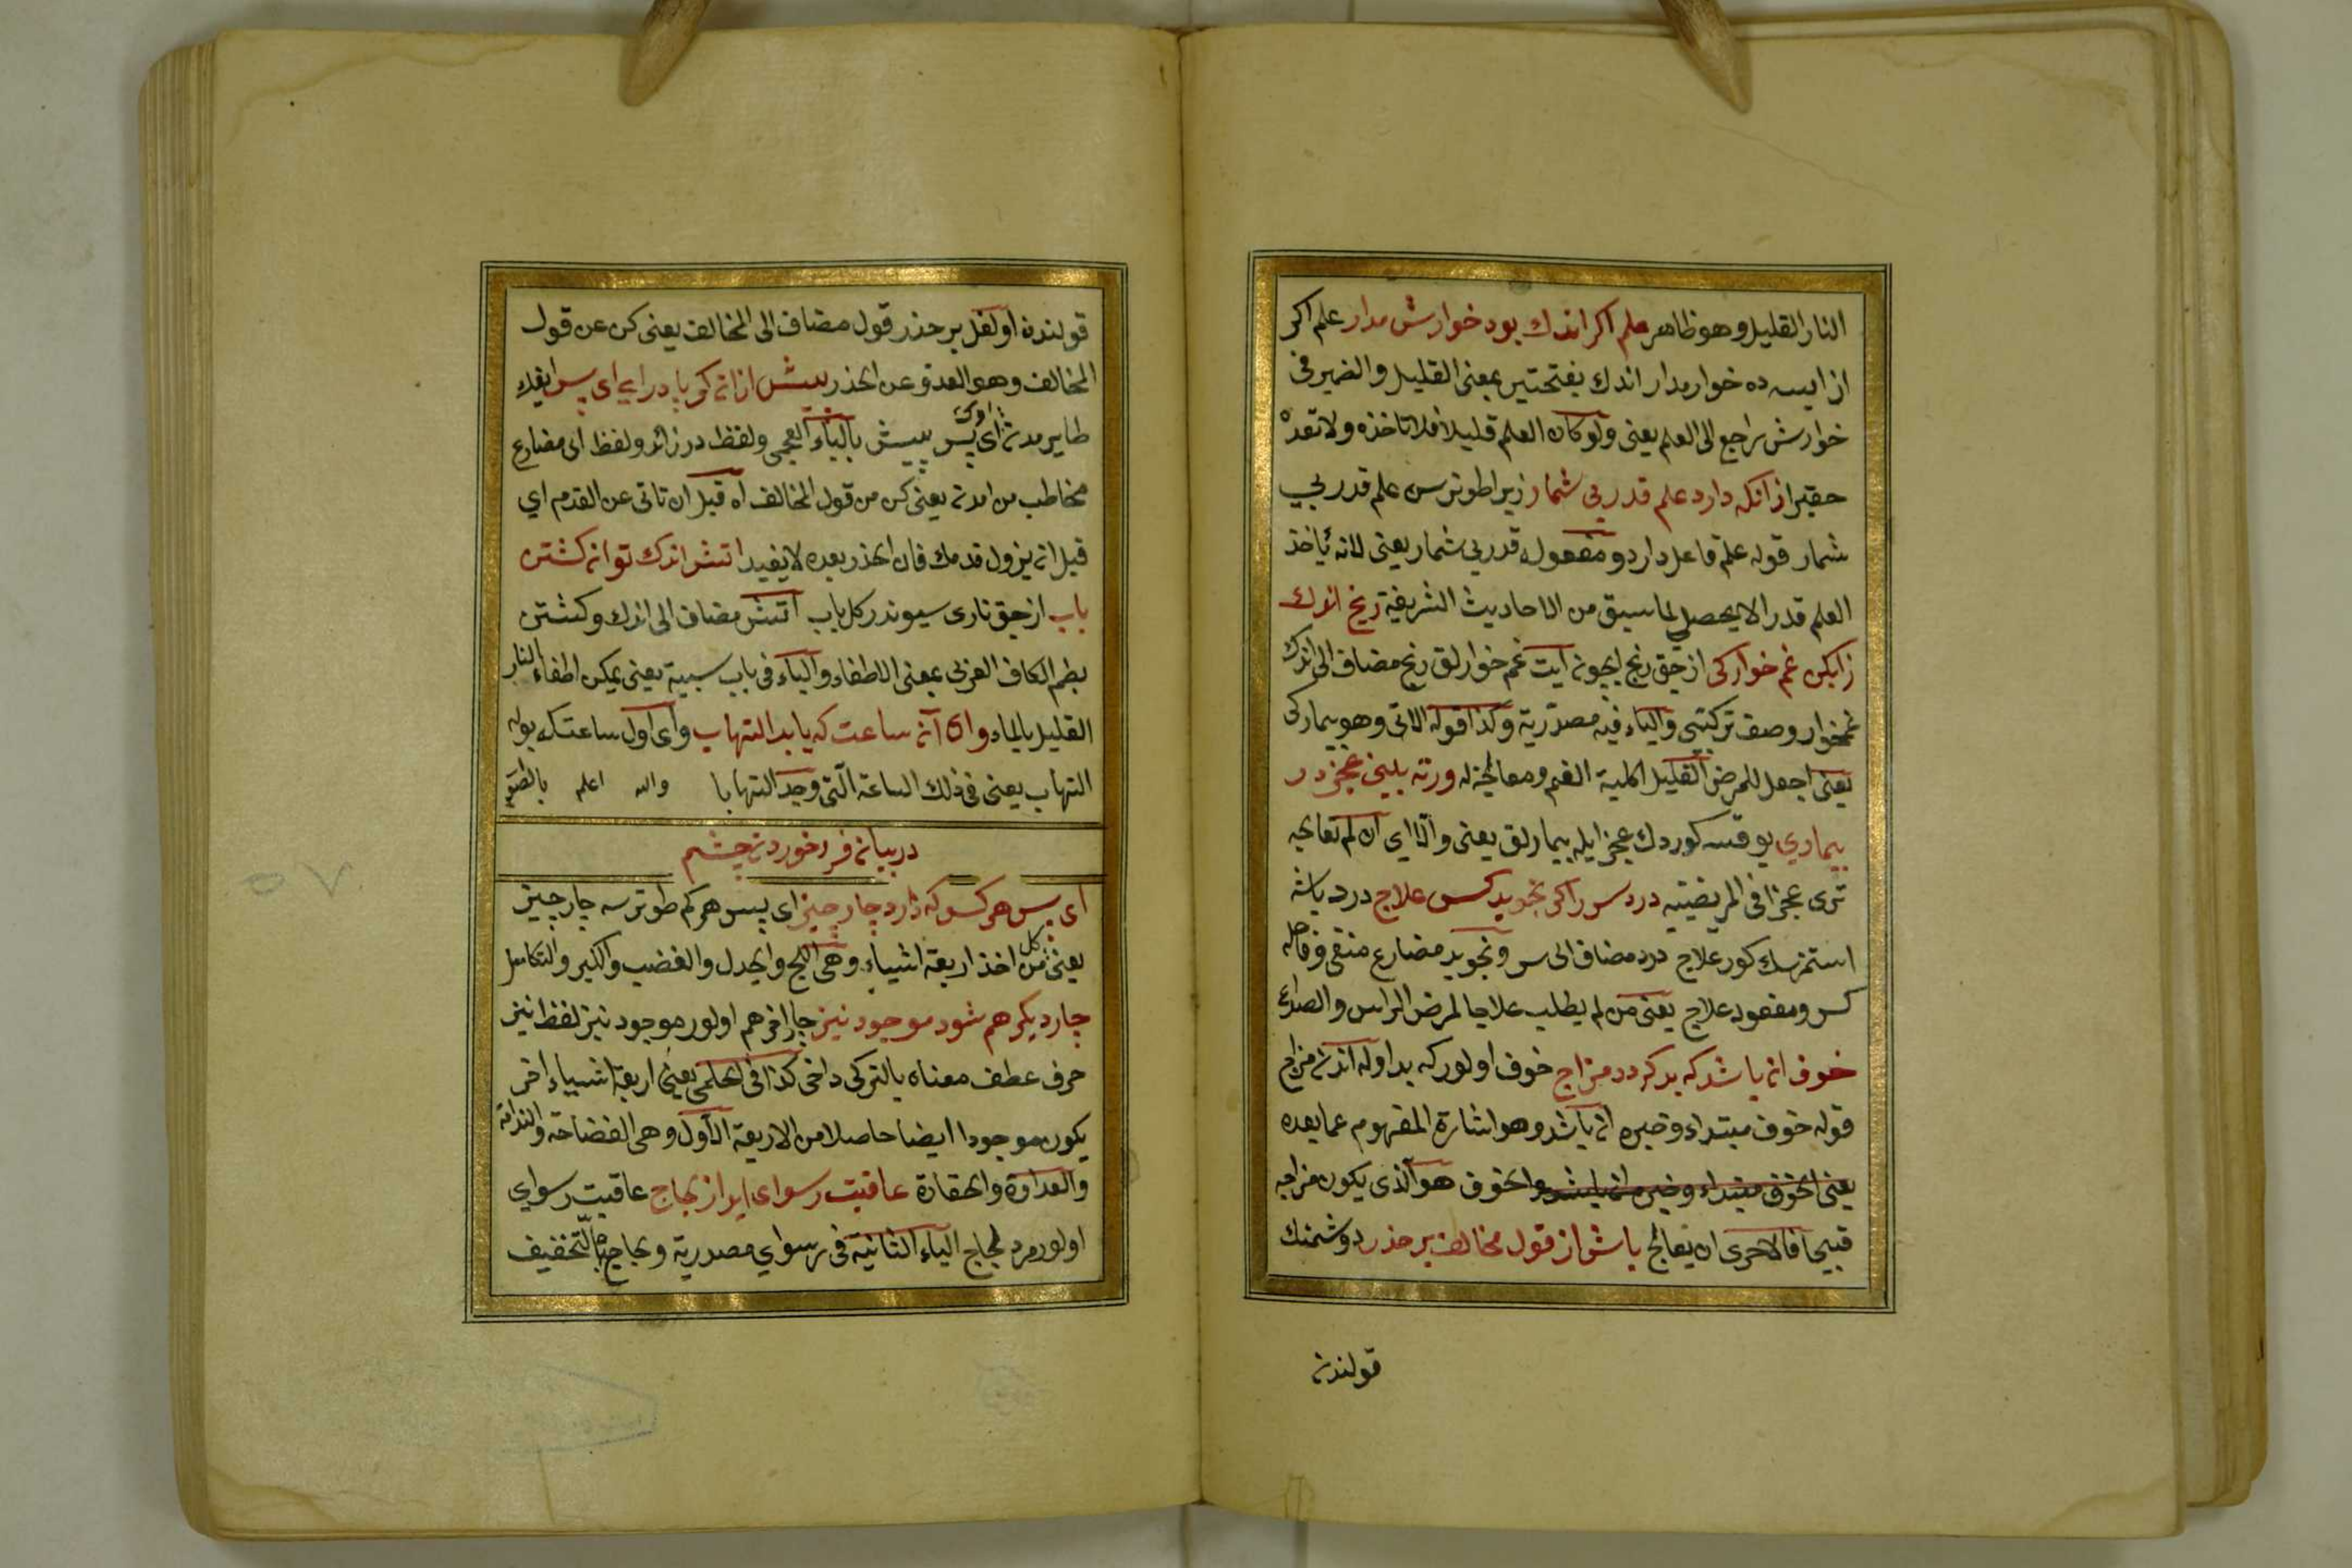 النار القليل وهو ظاهر علم اكر اندك بود خوارش مدار علم اكر
از ايسه ده خوار مدار اندك بفتحتين بمعنى القليل والضمير فى
خوارش راجع الى العلم يعنى ولو كان العلم قليلا فلا تاخذه ولا تعده
حقيرا زانكه دارد علم قدر بى شمار زيرا طوترسن علم قدر بى
شمار قوله علم فاعل دارد ومفعوله قدر بى شمار يعنى لانه ياخذ
العلم قدرا لا يحصى لما سبق من الاحاديث الشريفة رنج اندك
زا بكن غم خوار كى ازجق رنج ايچون ايت غم خوارلق رنج مضاف الى اندك
غمخوار وصف تركيبى والياء فيه مصدرية وكذا قوله الاتى وهو بيمار كى
يعنى اجعل للمرض القليل اكلية الغم ومعالجة له ورنه بينى عجز در
بيمارى يوقسه كوردك عجز ايله بيمارلق يعنى والا اى ان لم تعالجه
ترى عجزا فى المريضيته درد سر را كر نجويد كس علاج درد باشه
استمزسك كور علاج درد مضاف الى سر ونجويد مضارع منفى وفاعله
كس ومفعوله علاج يعنى من لم يطلب علاجا لمرض الراس والصداع
خوف ان باشد كه بد كردد مزاج خوف اولور كه بد اوله اندن مزاج
قوله خوف مبتداء وخبره ان باشد وهو اشارة المفهوم عما بعده
يعنى الخوف مبتداء وخبره ان باشد والخوف هو الذى يكون مزاجه
قبيحا فالاحرى ان يعالج باش از قول مخالف بر حذر دوشمنك
قولندن
قولندن اولغل بر حذر قول مضاف الى المخالف يعنى كن عن قول
المخالف وهو العدو عن الحذر پيش ازان كز پا در ايى اى پسر ايقدك
طاير مدن اوك اى پسر پيش بالباء العجمى ولفظ در زائد ولفظ اى مضارع
مخاطب من امدن يعنى كن من قول المخالف اه قبل ان تاتى عن القدم اى
قبل ان يزول قدمك فان الحذر بعده لا يفيد اتش اندك توان كشتن
باب ازجق نارى سيوندر كل باب اتش مضاف الى اندك وكشتن
بضم الكاف العربى بمعنى الاطفاء والباء فى باب سببية يعنى يمكن اطفاء النار
القليل بالماء واى آن ساعت كه يابد التهاب واى اول ساعتك بوله
التهاب يعنى فى ذلك الساعة التى وجد التهابا والله اعلم بالصوب
در بيان فرو خوردن چشم
اى پسر هر كسو كه دارد چار چيز اى پسر هر كم طوترسه چار چيز
يعنى كل من اخذ اربعة اشياء وهى اللج والجدل والغضب والكبر والتكاسل
چار ديكر هم شود موجود نيز چار اخر هم اولور موجود نيز لفظ نيز
حرف عطف معناه بالتركى داخى كذا فى الحلمى يعنى اربعة اشياء اخر
يكون موجودا ايضا حاصلا من الاربعة الاول وهى الفضاحة والندامة
والعداوة والحقارة عاقبت رسواى ايد از لجاج عاقبت رسواى
اولور مرد لجاج الياء الثانية فى رسواى مصدرية ولجاج بالتخفيف
٥٧